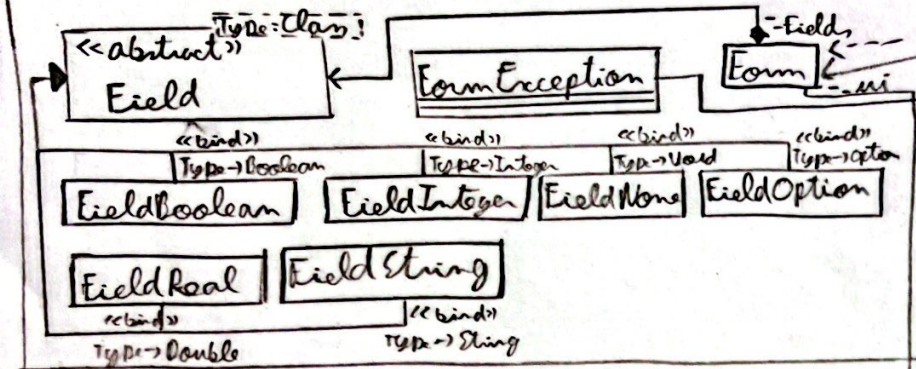 Type:Class
<<abstract>>
Field
-Fields
FormException
Form
<<bind>>
Type->Boolean
<<bind>>
Type->Integer
<<bind>>
Type->Void
<<bind>>
Type->Option
FieldBoolean
FieldInteger
FieldNone
FieldOption
FieldReal
FieldString
<<bind>>
Type->Double
<<bind>>
Type->String